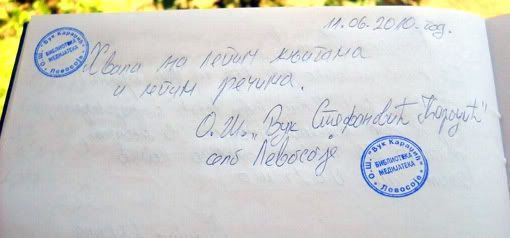 11.06.2010. год.
О.Ш. "Вук Караџић"
БИБЛИОТЕКА
МЕДИЈАТЕКА
Левосоје
Хвала на лепим књигама
и лепим речима.
О.Ш. „Вук Стефановић Караџић"
село Левосоје
О.Ш. "Вук Караџић"
БИБЛИОТЕКА
МЕДИЈАТЕКА
Левосоје